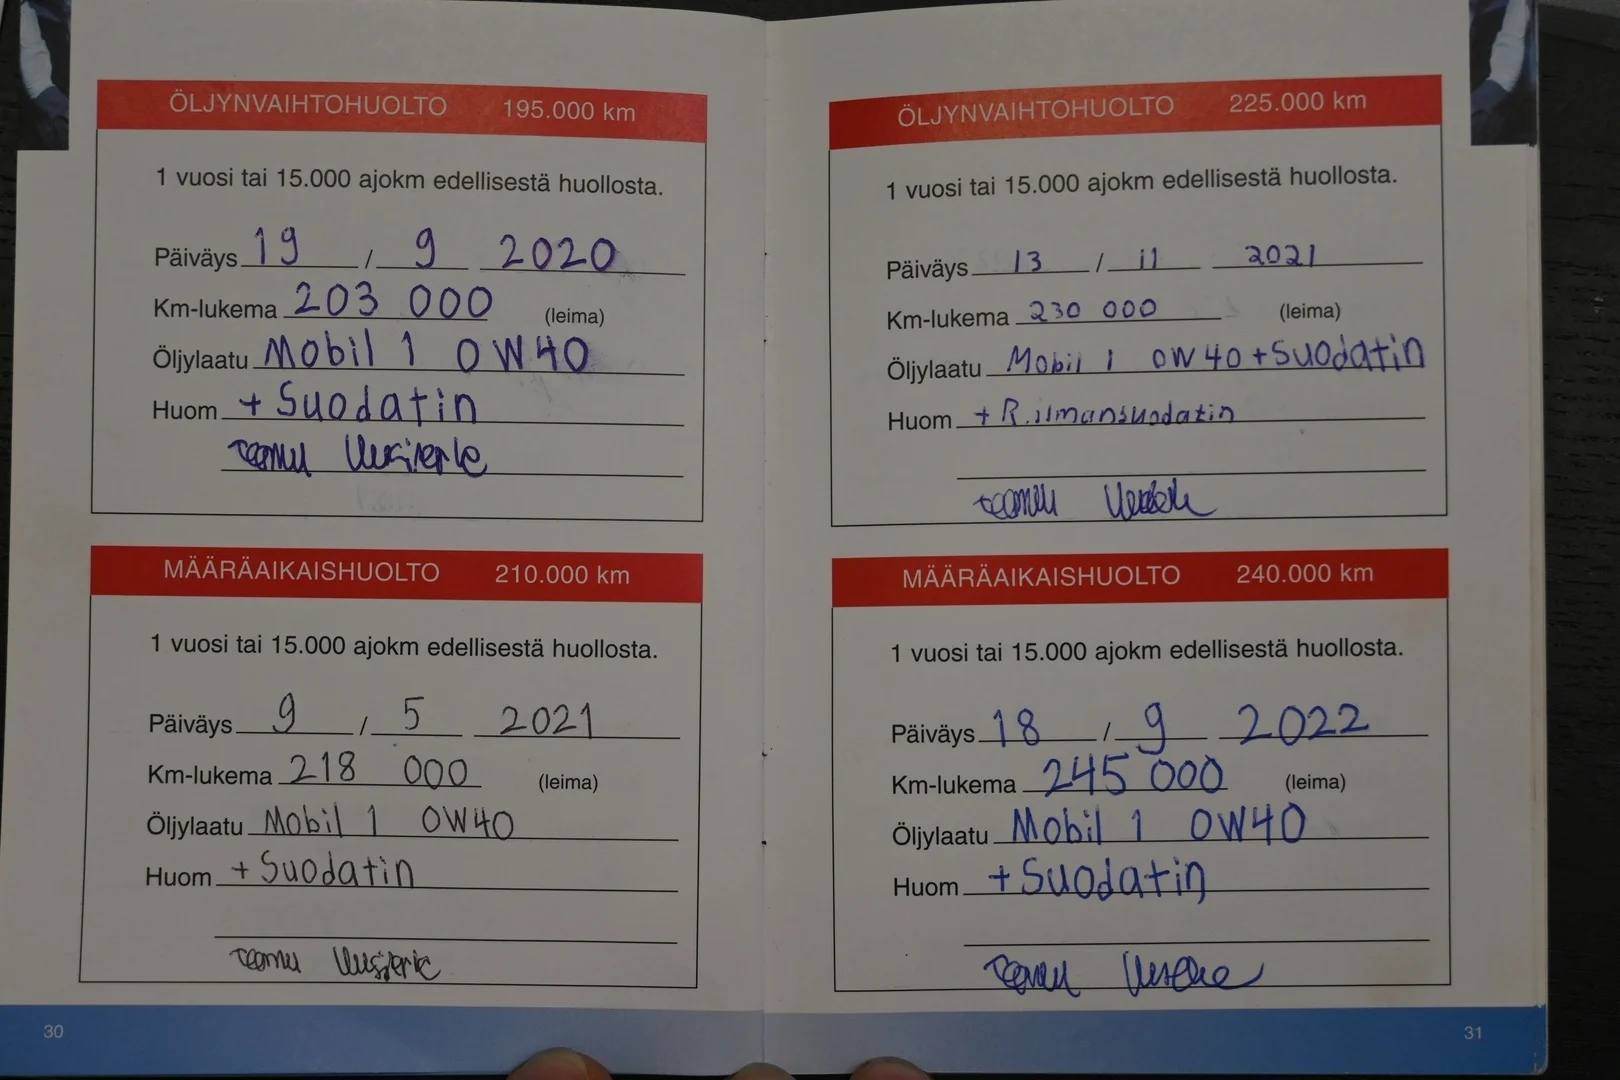 ÖLJYNVAIHTOHUOLTO 195.000 km
1 vuosi tai 15.000 ajokm edellisestä huollosta.
Päiväys 19 / 9 2020
Km-lukema 203 000 (leima)
Öljylaatu Mobil 1 0W40
Huom + Suodatin
Teemu
MÄÄRÄAIKAISHUOLTO 210.000 km
1 vuosi tai 15.000 ajokm edellisestä huollosta.
Päiväys 9 / 5 2021
Km-lukema 218 000 (leima)
Öljylaatu Mobil 1 0W40
Huom + Suodatin
Teemu
30
ÖLJYNVAIHTOHUOLTO 225.000 km
1 vuosi tai 15.000 ajokm edellisestä huollosta.
Päiväys 13 / 11 2021
Km-lukema 230 000 (leima)
Öljylaatu Mobil 1 0W40 + Suodatin
Huom + R.ilmansuodatin
Teemu
MÄÄRÄAIKAISHUOLTO 240.000 km
1 vuosi tai 15.000 ajokm edellisestä huollosta.
Päiväys 18 / 9 2022
Km-lukema 245 000 (leima)
Öljylaatu Mobil 1 0W40
Huom + Suodatin
Teemu
31